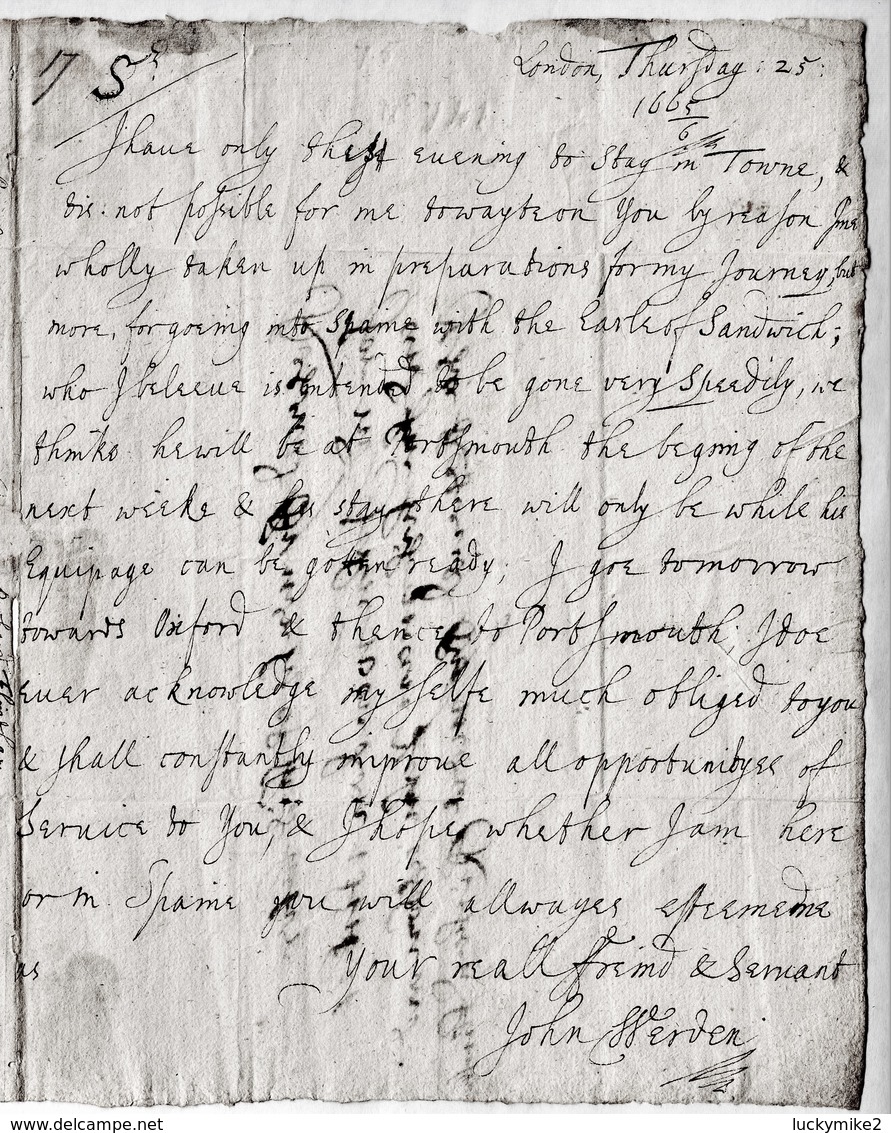 17 Sr
London, Thursday: 25:
1665/6
I have only this evening to Stay in Towne, &
tis not possible for me to wayte on You by reason I'me
wholly taken up in preparations for my Journey, but
more, for goeing into Spaine with the Earle of Sandwich;
who I beleeve is Intended to be gone very Speedily, we
thinke he will be at Portsmouth the begning of the
next weeke & his stay there will only be while his
Equipage can be gotten ready; I goe tomorrow
towards Oxford & thence to Portsmouth; I doe
ever acknowledge my selfe much obliged to you
& shall constantly improve all opportunityes of
Service to You, & I hope whether I am here
or in Spaine you will allwayes esteeme me
as Your reall ffreind & Servant
John Werden
www.delcampe.net
luckymike2